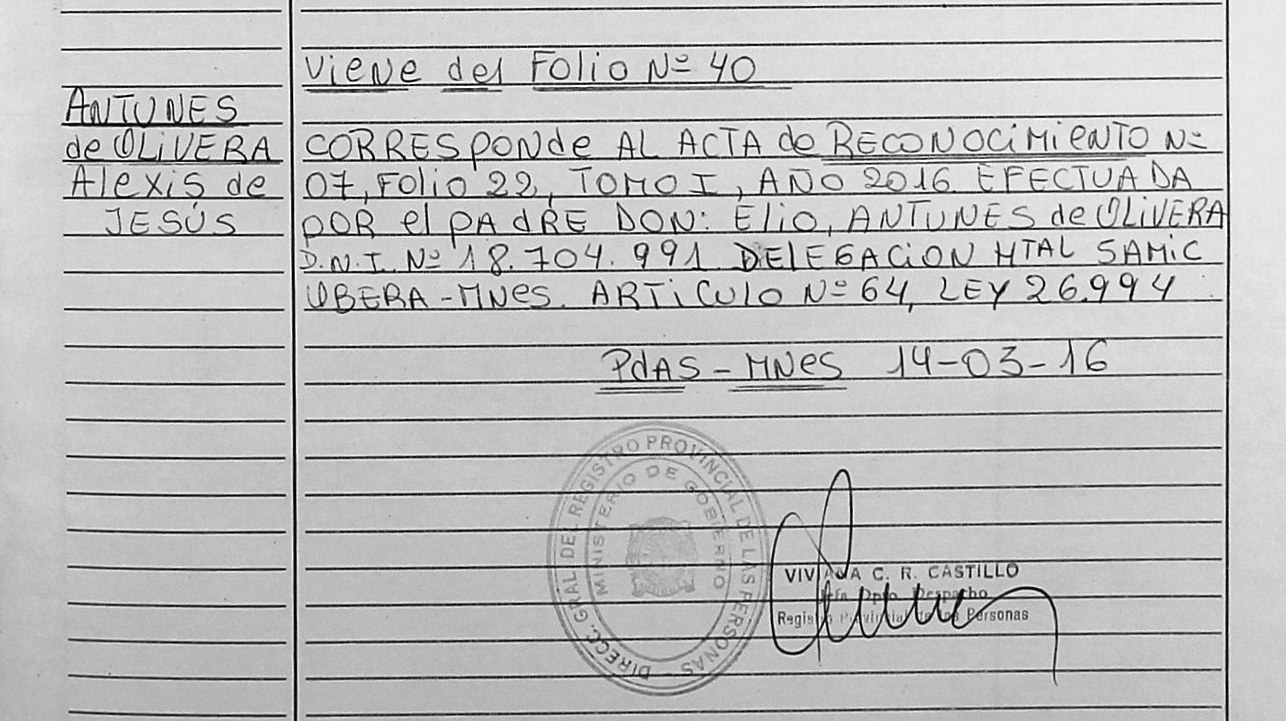 Viene del Folio Nº 40
ANTUNES
de OLIVERA
Alexis de
JESÚS
CORRESponde AL ACTA de RECONOCiMiENTO Nº
07, Folio 22, TOMO I, AÑO 2016 EFECTUADA
POR el PADRE DON: Elio, ANTUNES de OLIVERA
D.N.I. Nº 18.704.991 DELEGACION HTAL SAMiC
OBERA-MNes. ARTiCULO Nº 64, LEY 26.994.
PdAS - MNes 14-03-16
DIRECC. GRAL. DEL REGISTRO PROVINCIAL DE LAS PERSONAS
MINISTERIO DE GOBIERNO
VIVIANA C. R. CASTILLO
Jefa Dpto. Despacho
Registro Provincial de las Personas